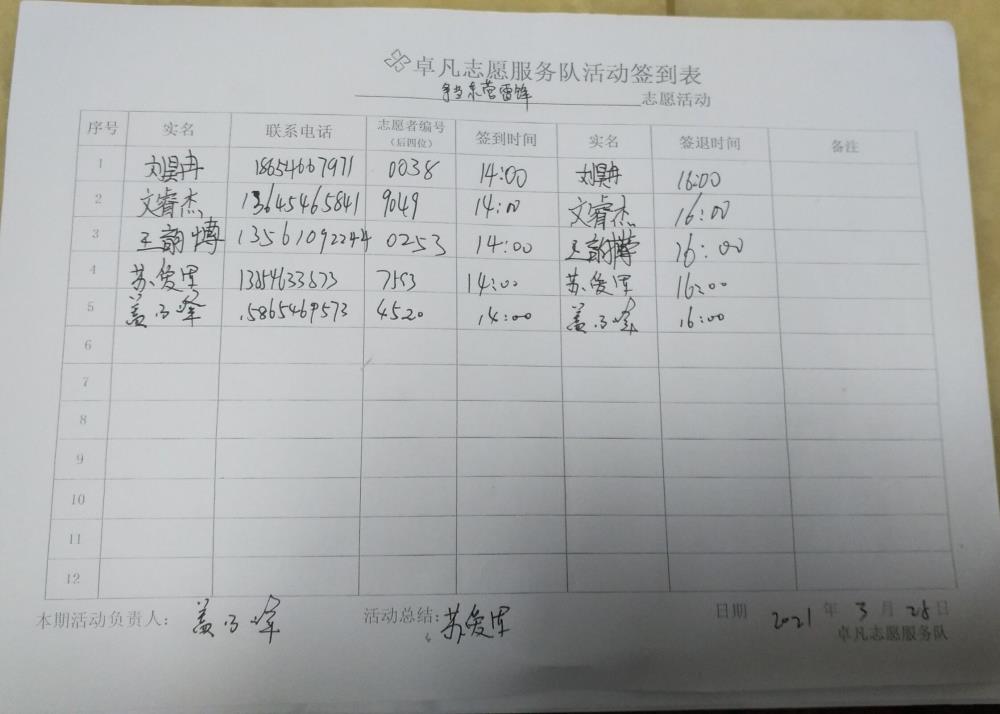 卓凡志愿服务队活动签到表
争当东营雷锋 志愿活动
序号 实名 联系电话 志愿者编号（后四位） 签到时间 实名 签退时间 备注
1 刘昊冉 18654667971 0038 14:00 刘昊冉 16:00
2 文睿杰 13645465841 9049 14:00 文睿杰 16:00
3 王韵博 13561092244 0253 14:00 王韵博 16:00
4 苏俊军 13854633573 7553 14:00 苏俊军 16:00
5 盖子峰 15865469573 4520 14:00 盖子峰 16:00
6
7
8
9
10
11
12
本期活动负责人： 盖子峰 活动总结: 苏俊军 日期 2021 年 3 月 28 日
卓凡志愿服务队